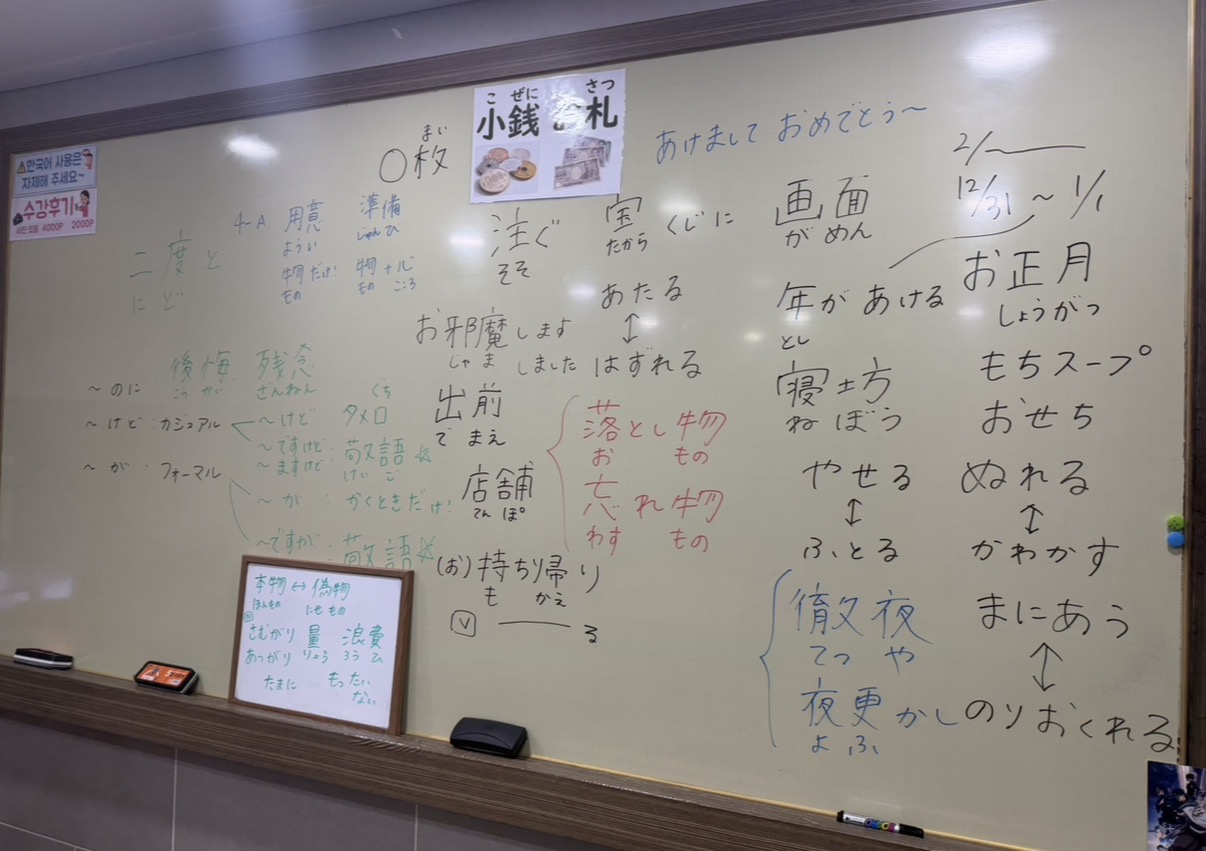 ⚠한국어 사용은
자제해 주세요~
수강후기
사진 있음 4000P 2000P
二度と
にど
4-A 用意 準備
ようい じゅんび
物だけ! 物+心
もの もの こころ
まい
○枚
こ ぜに さつ
小銭 お札
あけまして おめでとう~
2/
12/31 ~ 1/1
後悔 残念
こうかい ざんねん
~のに
~けど:カジュアル
~が:フォーマル
~けど タメ口
ぐち
~ですけど
~ますけど:敬語☆
けい ご
~が:かくときだけ!
~ですが:敬語☆
注ぐ
そそ
お邪魔します
じゃま しました
出前
でまえ
店舗
てんぽ
(お)持ち帰り
も かえ
V る
宝くじに
たから
あたる
↕
はずれる
落とし物
お もの
忘れ物
わす もの
画面
がめん
年があける
とし
寝坊
ねぼう
やせる
↕
ふとる
徹夜
てつや
夜更かし
よふ
お正月
しょうがつ
もちスープ
おせち
ぬれる
↕
かわかす
まにあう
↕
のりおくれる
本物↔偽物
ほんもの にせもの
さむがり 量 浪費
あつがり りょう ろうひ
たまに もったい
ない